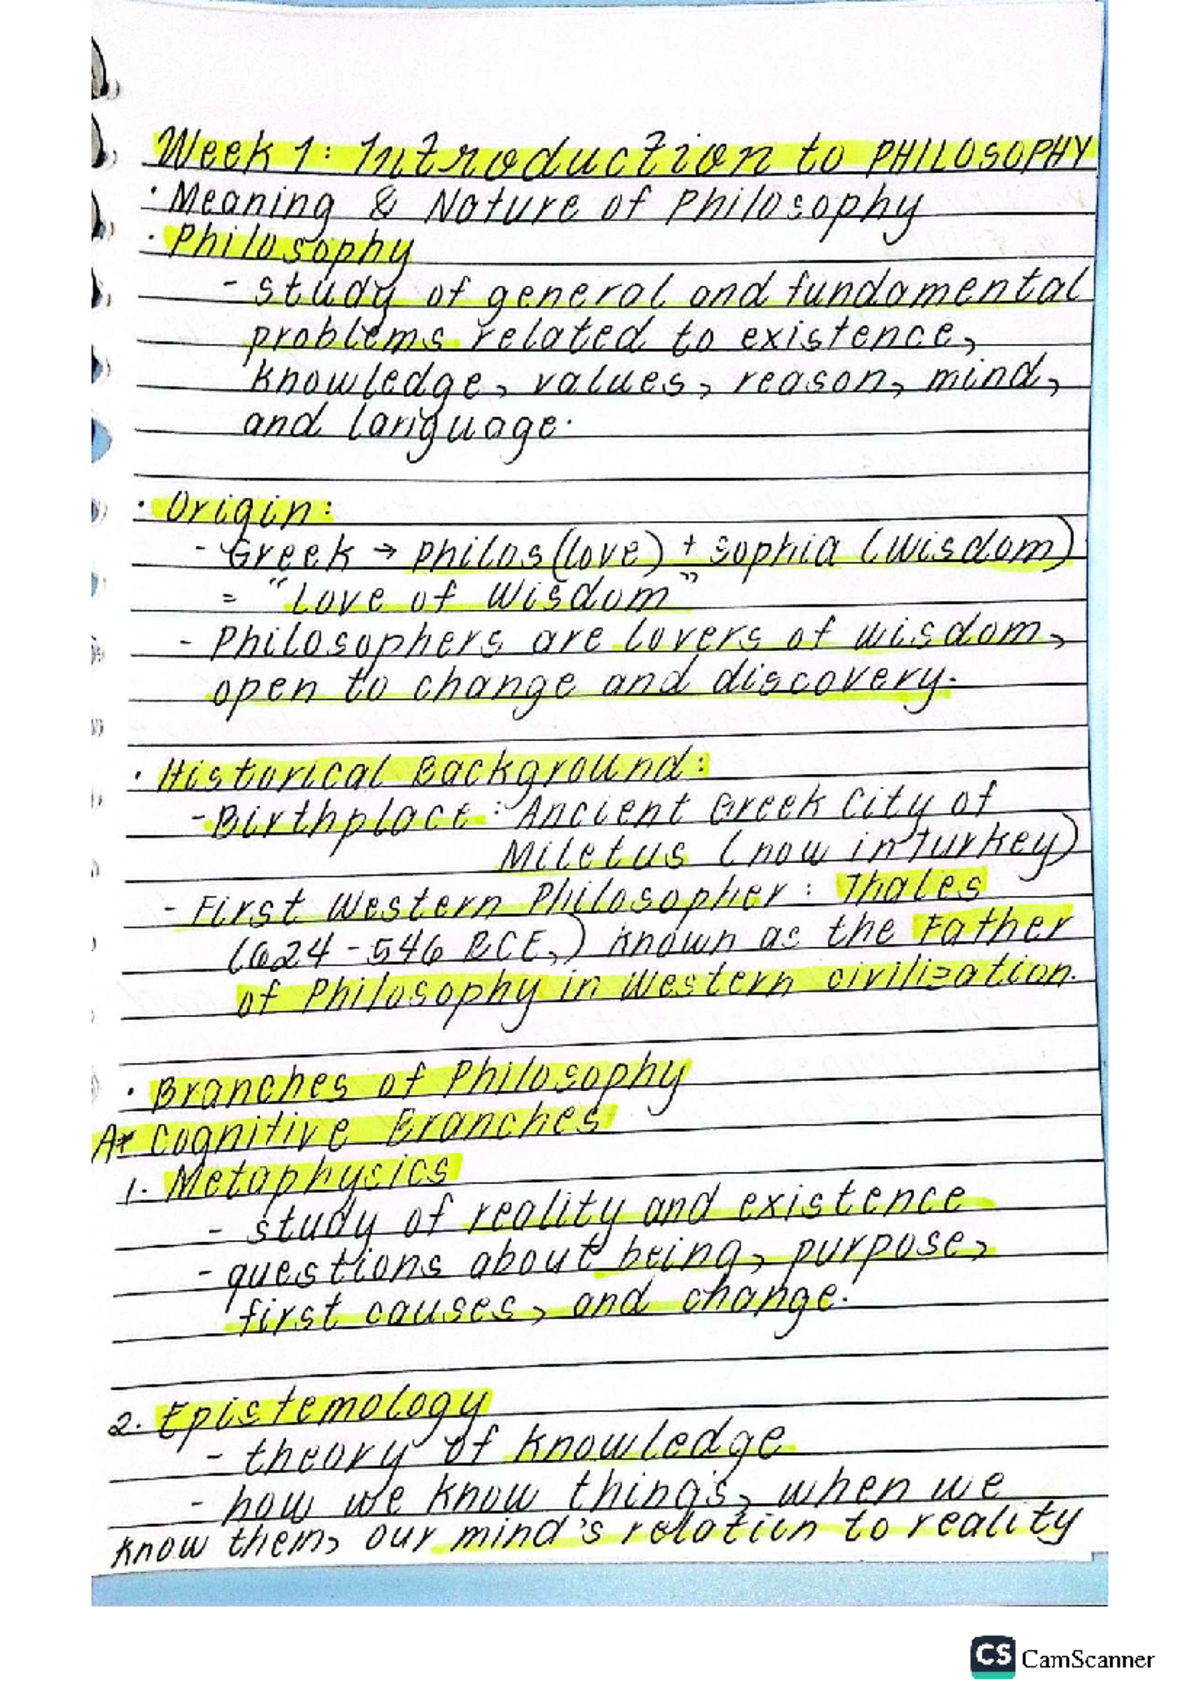 Week 1: Introduction to PHILOSOPHY
• Meaning & Nature of Philosophy
• Philosophy
- study of general and fundamental
problems related to existence,
knowledge, values, reason, mind,
and language.
• Origin:
- Greek → philos (love) + sophia (wisdom)
= "Love of Wisdom"
- Philosophers are lovers of wisdom,
open to change and discovery.
• Historical Background:
- Birthplace: Ancient Greek City of
Miletus (now in Turkey)
- First Western Philosopher: Thales
(624-546 BCE,) known as the Father
of Philosophy in Western civilization.
• Branches of Philosophy
A• Cognitive Branches
1. Metaphysics
- study of reality and existence
- questions about being, purpose,
first causes, and change.
2. Epistemology
- theory of knowledge
- how we know things, when we
know them, our mind's relation to reality
CS CamScanner